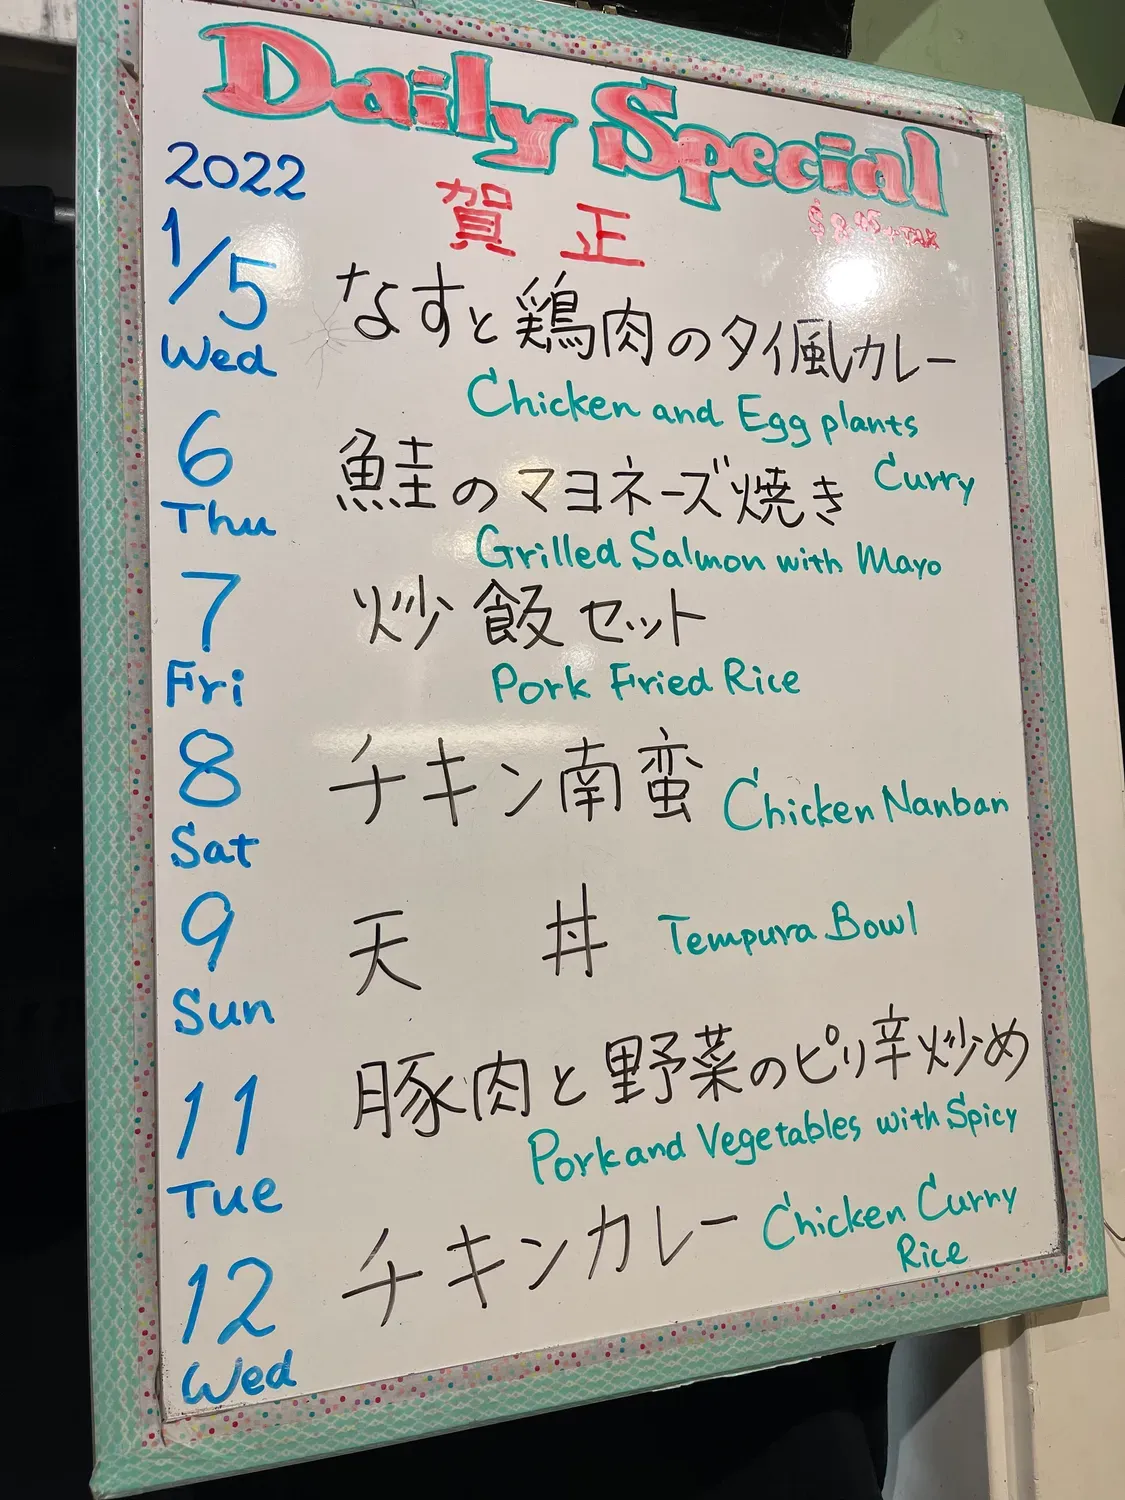 Daily Special
2022
賀 正
$8.95+TAX
1/5
Wed
なすと鶏肉のタイ風カレー
Chicken and Egg plants
Curry
6
Thu
鮭のマヨネーズ焼き
Grilled Salmon with Mayo
7
Fri
炒飯セット
Pork Fried Rice
8
Sat
チキン南蛮
Chicken Nanban
9
Sun
天 丼
Tempura Bowl
11
Tue
豚肉と野菜のピリ辛炒め
Pork and Vegetables with Spicy
12
Wed
チキンカレー
Chicken Curry
Rice